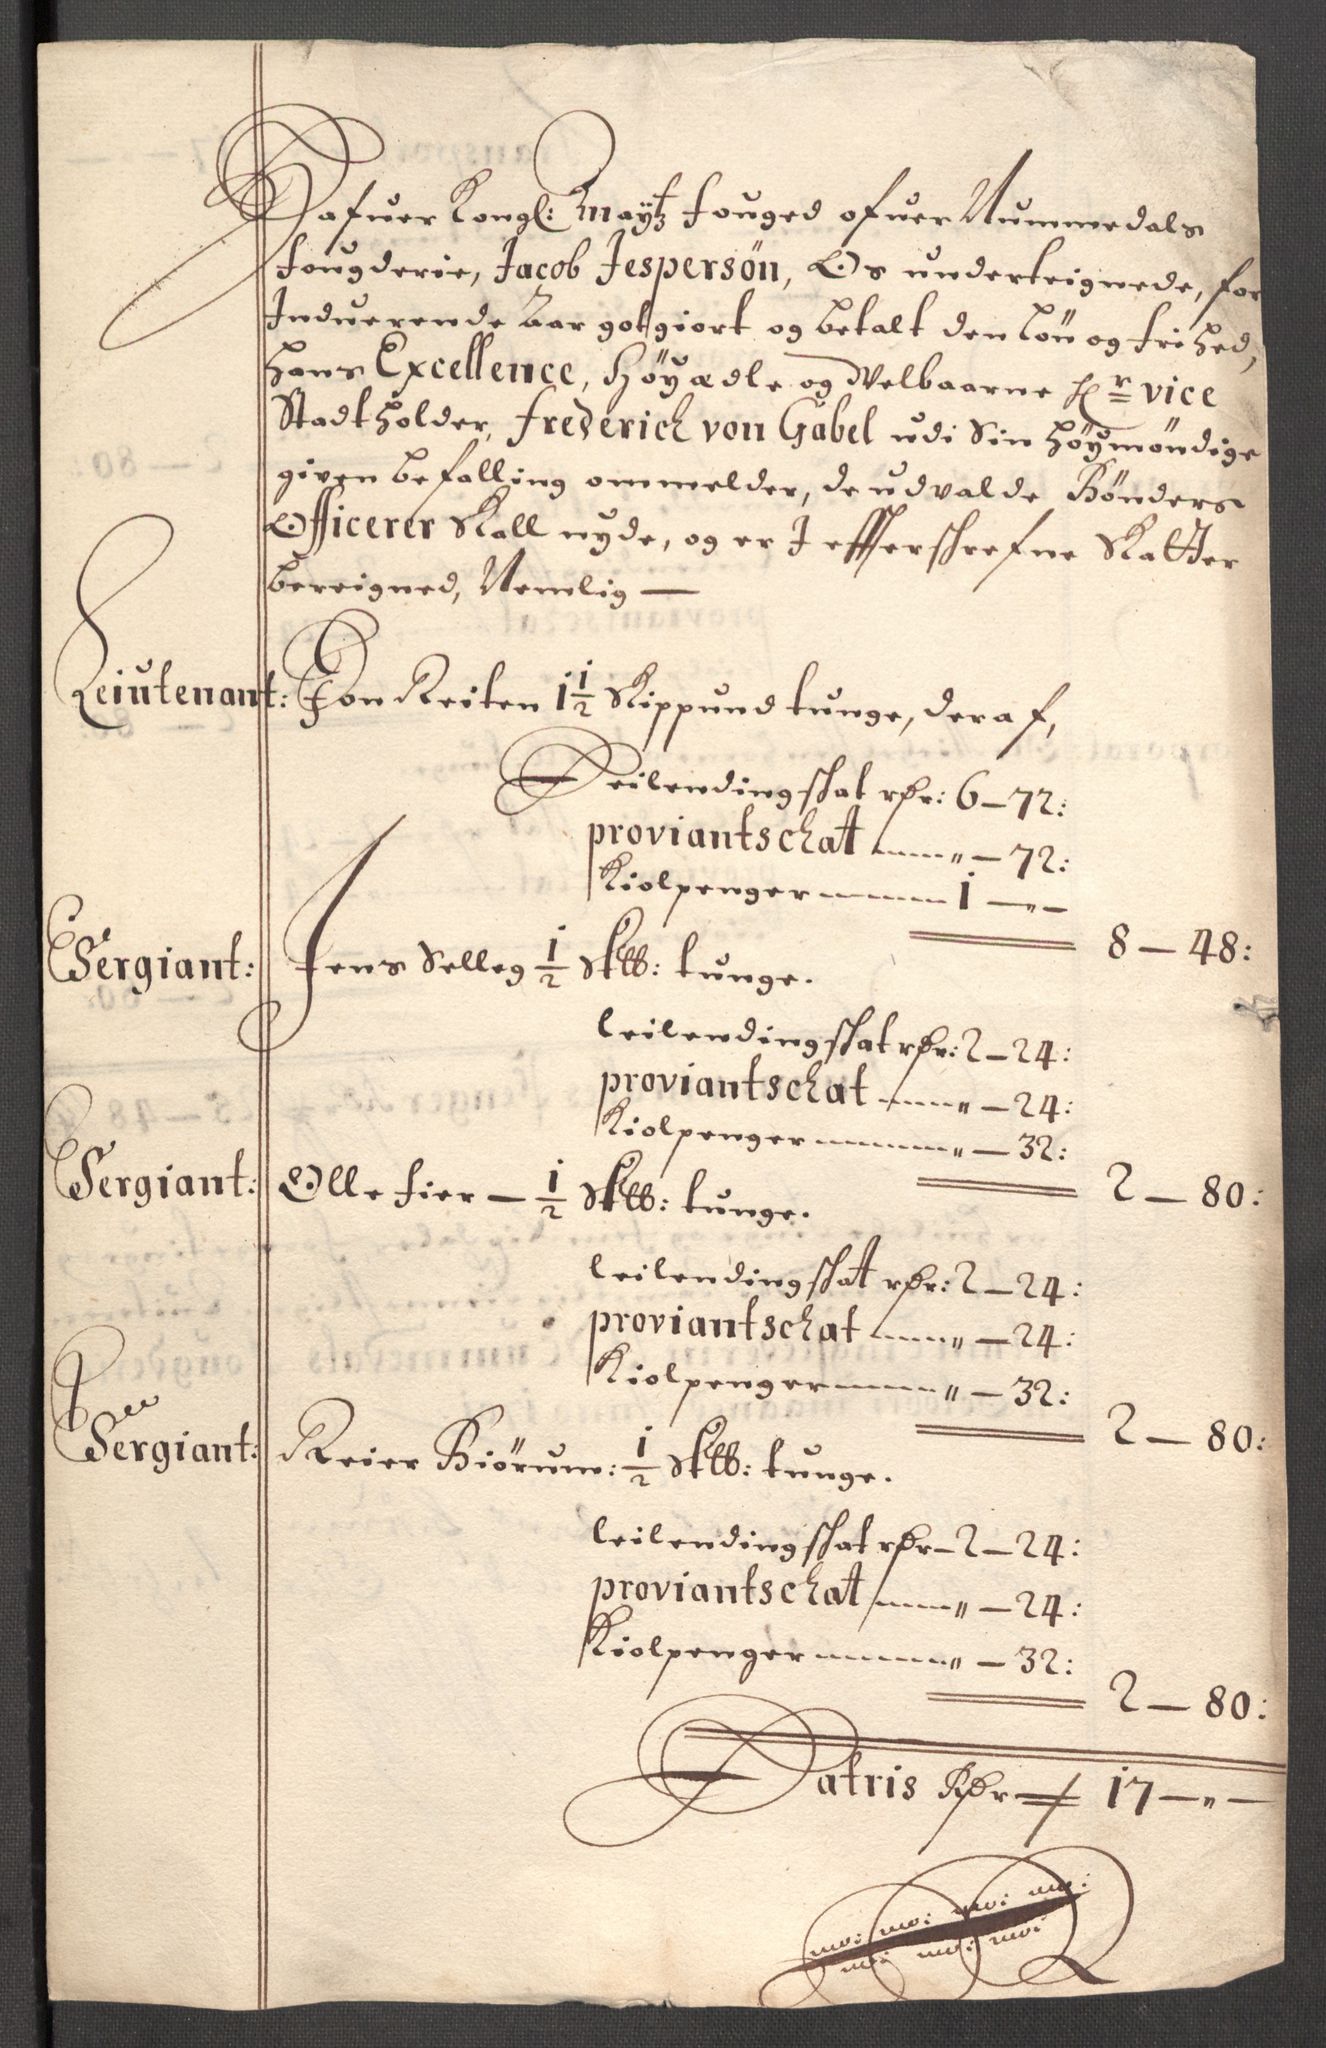 Hafuer Kongl: Maytz fouged ofuer Nummedals
fougderie, Jacob Jespersön, Os underteignede, for
Induerende Aar gotgiort og betalt den lön og frihed,
Hans Excellence, Höyædle og Welbaarne Hr vice
Stadtholder, Frederich von Gabel udi Sin Höymöndige
given befalling ommelder, de udvalde Bönders
Officerer Skall nyde, og er I effterschrefne Skatter
bereigned, Nemlig —
Leiutenant: Jon Reiten 1 1/2 Skippund tunge, deraf,
Leilendingsskat rdr: 6 — 72:
proviantschat ...... „ — 72:
Kiolpenger ...... 1 — „ —
8 — 48:
Sergiant: Jens Selleg 1/2 Sklb: tunge.
leilendingsskat rdr: 2 — 24:
proviantschat ...... „ — 24:
Kiolpenger ...... „ — 32:
2 — 80:
Sergiant: Olle fier — 1/2 Sklb: tunge.
leilendingsskat rdr: 2 — 24:
proviantschat ...... „ — 24:
Kiolpenger ...... „ — 32:
2 — 80:
Sergiant: Reier Biörum: 1/2 Sklb: tunge.
leilendingsskat rdr — 2 — 24:
proviantschat ...... „ — 24:
Kiolpenger ...... „ — 32:
2 — 80:
Latris Rdr — 17 — „ —